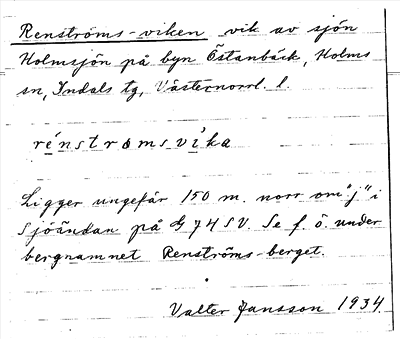 Renströms-viken vik av sjön
Holmsjön på byn Östanbäck, Holms
sn, Indals tg, Västernorrl. l.
rénstromsvi̍ka
Ligger ungefär 150 m. norr om "j" i
Sjöändan på G 74 SV. Se f. ö. under
bergnamnet Renströms-berget.
Valter Jansson 1934.